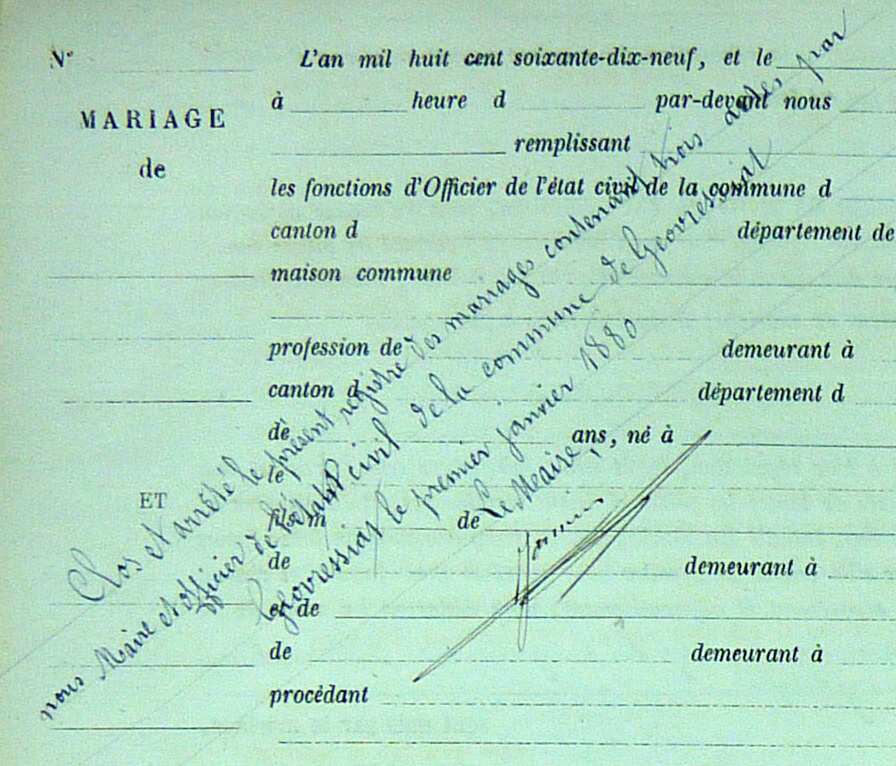 N°
MARIAGE
de
ET
L'an mil huit cent soixante-dix-neuf, et le
à heure d par-devant nous
remplissant
les fonctions d'Officier de l'état civil de la commune d
canton d département de
maison commune
profession de demeurant à
canton d département d
de ans, né à
le
fils m de
de demeurant à
et de
de demeurant à
procédant
Clos et arrêté le présent registre des mariages contenant trois actes par
nous Maire et officier de l'état civil de la commune de Geovressiat
Geovressiat le premier janvier 1880
Le Maire,